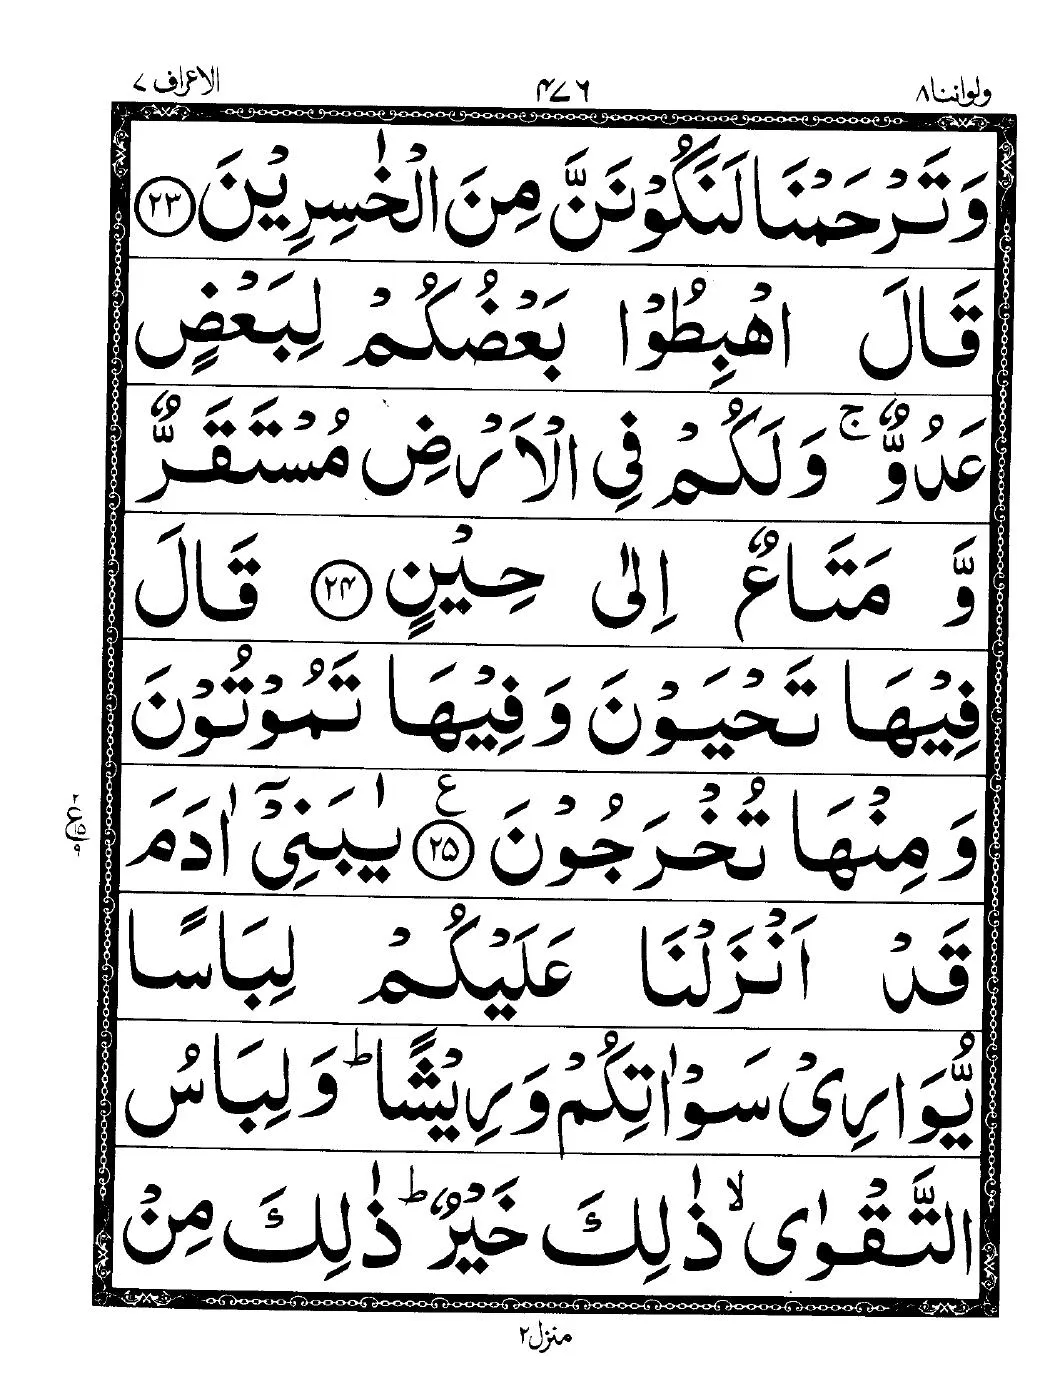 ولواننا ۸
۴۷۶
الاعراف ۷
وَ تَرْحَمْنَا لَنَكُوْنَنَّ مِنَ الْخٰسِرِیْنَ ﴿۲۳﴾
قَالَ اهْبِطُوْا بَعْضُكُمْ لِبَعْضٍ
عَدُوٌّ ۚ وَ لَكُمْ فِی الْاَرْضِ مُسْتَقَرٌّ
وَّ مَتَاعٌ اِلٰی حِیْنٍ ﴿۲۴﴾ قَالَ
فِیْهَا تَحْیَوْنَ وَ فِیْهَا تَمُوْتُوْنَ
وَ مِنْهَا تُخْرَجُوْنَ ﴿۲۵﴾ ع یٰبَنِیْۤ اٰدَمَ
قَدْ اَنْزَلْنَا عَلَیْكُمْ لِبَاسًا
یُّوَارِیْ سَوْاٰتِكُمْ وَ رِیْشًا ؕ وَ لِبَاسُ
التَّقْوٰی ۙ ذٰلِكَ خَیْرٌ ؕ ذٰلِكَ مِنْ
منزل ۲